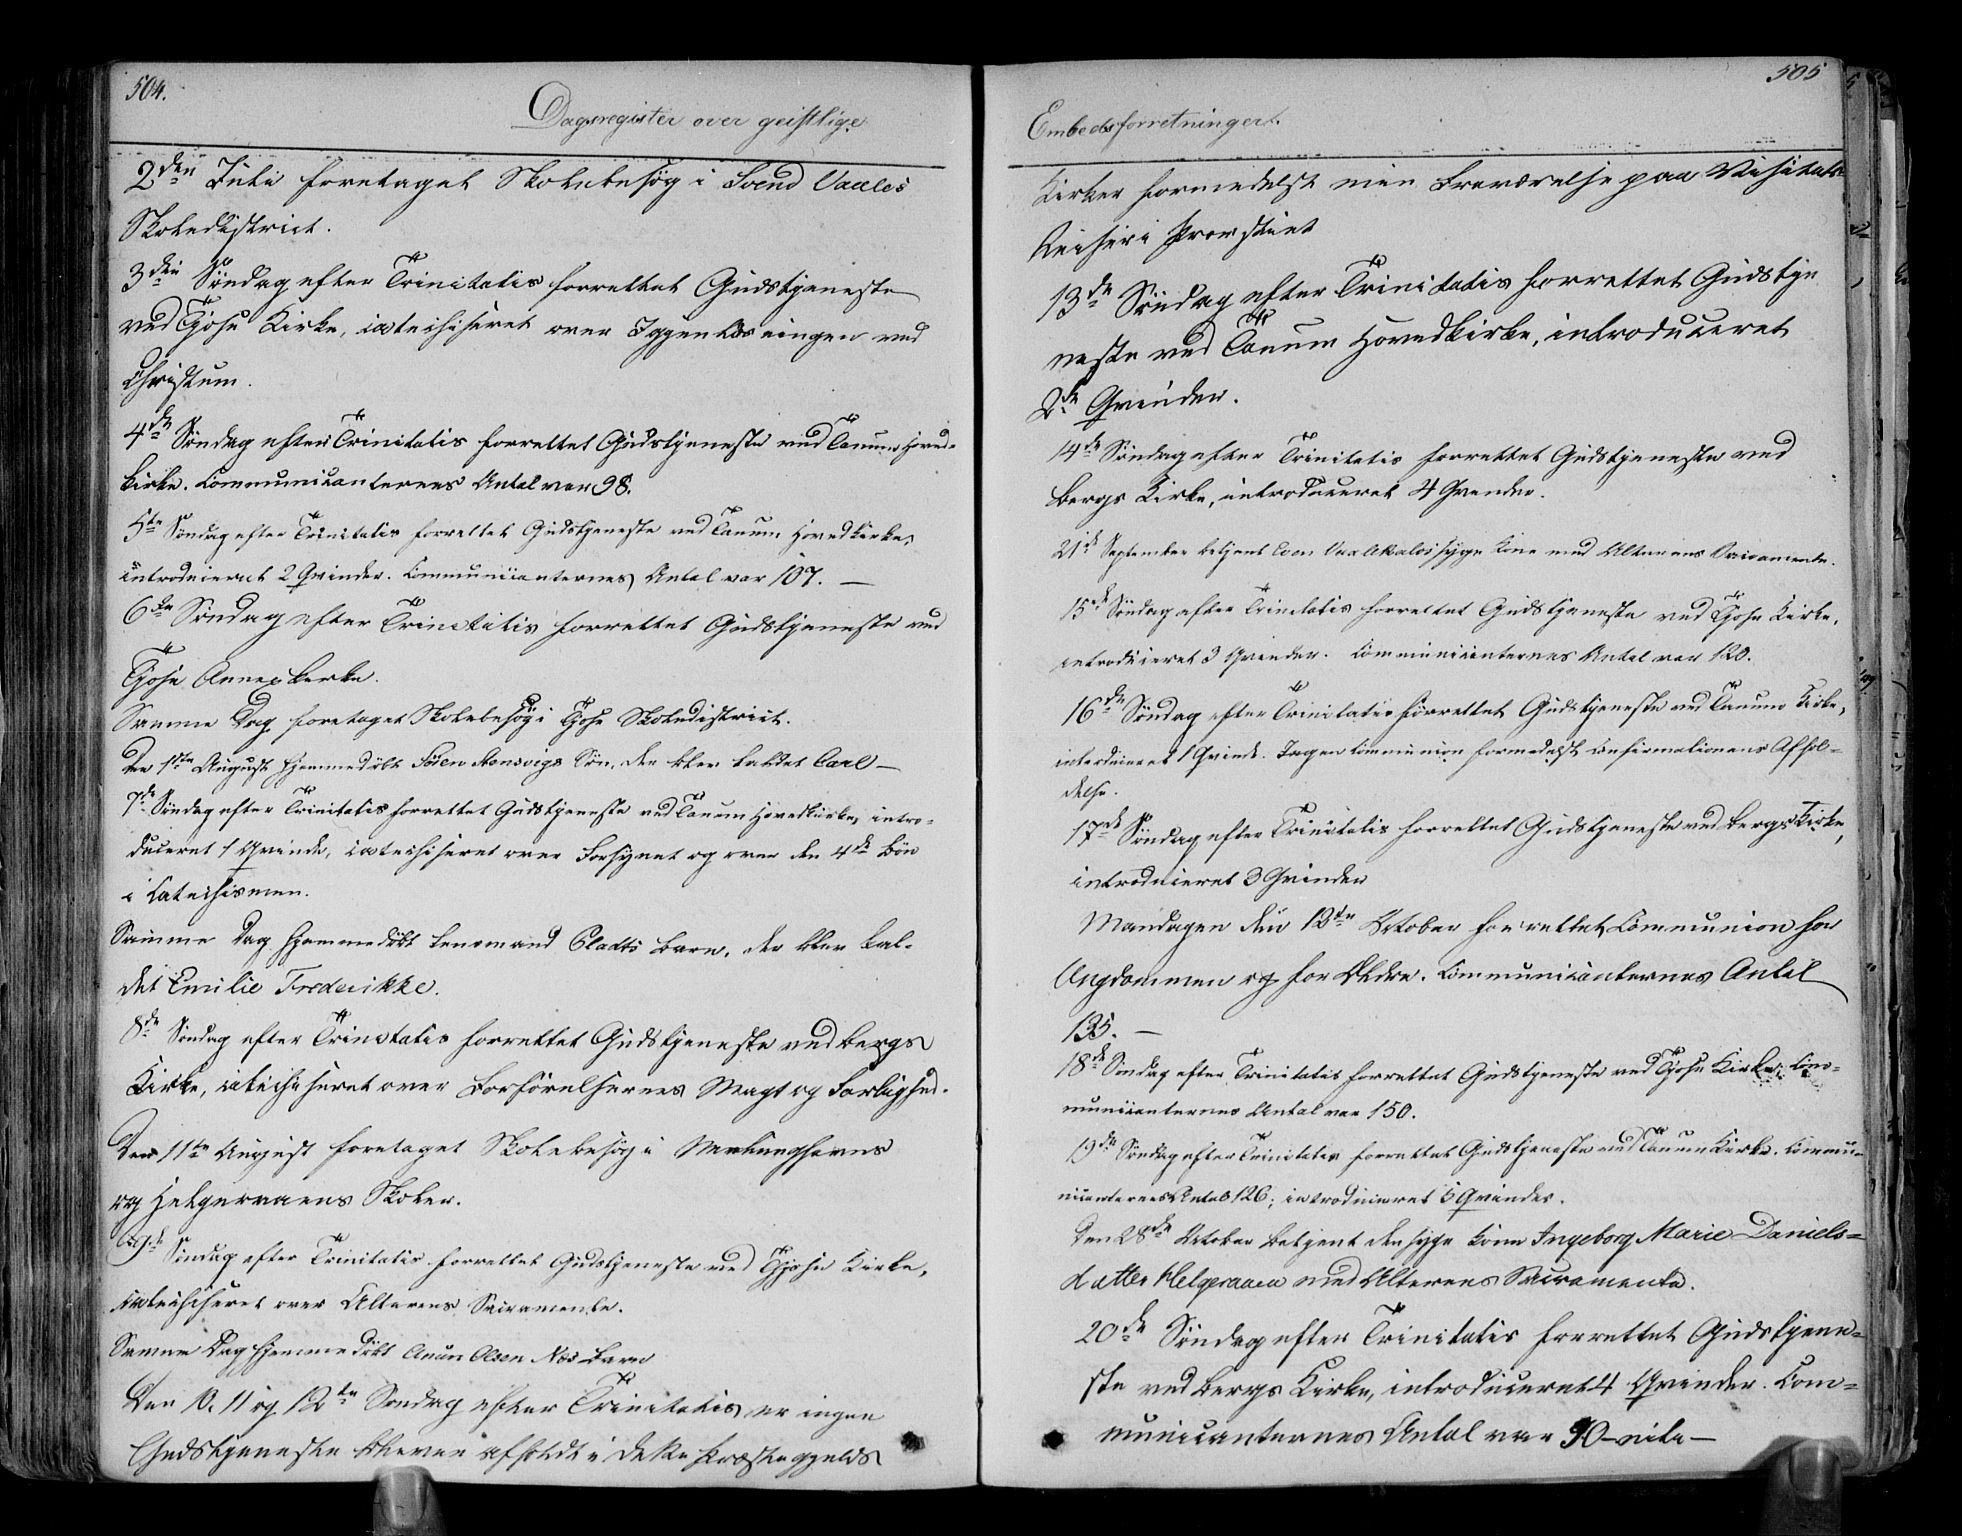 504.
Dagsregister over geistlige
2den Juli foretaget Skolebesøg i Svend Vaales
Skoledistrict.
3die Søndag efter Trinitatis forrettet Gudstjeneste
ved Tjose Kirke, catechiseret over Igjenløsningen ved
Christum.
4de Søndag efter Trinitatis forrettet Gudstjeneste ved Tanum Hoved-
kirke. Communicanternes Antal var 98.
5te Søndag efter Trinitatis forrettet Gudstjeneste ved Tanum Hovedkirke,
introduceret 2 Qvinder. Communicanternes Antal var 107. —
6te Søndag efter Trinitatis forrettet Gudstjeneste ved
Tjose Annexkirke.
Samme Dag foretaget Skolebesøg i Tjose Skoledistrict.
Den 1ste August hjemmedøbt Søren Søn, der blev kaldet Carl —
7de Søndag efter Trinitatis forrettet Gudstjeneste ved Tanum Hovedkirke, intro-
duceret 1 Qvinde, catechiseret over Forsynet og over den 4de Bøn
i Catechismen.
Samme Dag hjemmedøbt Lensmand Pladts Barn, der blev kal-
det Emilie Frederikke.
8de Søndag efter Trinitatis forrettet Gudstjeneste ved Bergs
Kirke, catechiseret over Forførelsernes Magt og Farlighed.
Den 11te August foretaget Skolebesøg i Nevlunghavns
og Helgeraaens Skoler.
9de Søndag efter Trinitatis forrettet Gudstjeneste ved Tjose Kirke,
catechiseret over Alterens Sacramente.
Samme Dag hjemmedøbt Anun Olsen Næs Barn
Den 10, 11 og 12te Søndag efter Trinitatis er ingen
Gudstjeneste bleven afholdt i dette Præstegjelds
505
Embedsforretninger.
Kirker formedelst min Fraværelse paa Visitats-
Reiser i Provstiet
13de Søndag efter Trinitatis forrettet Gudstje
neste ved Tanum Hovedkirke, introduceret
2de Qvinder.
14de Søndag efter Trinitatis forrettet Gudstjeneste ved
Bergs Kirke, introduceret 4 Qvinder.
21de September betjent Even syge Kone med Alterens Sacramente.
15de Søndag efter Trinitatis forrettet Gudstjeneste ved Tjose Kirke,
introduceret 3 Qvinder. Communicanternes Antal var 120.
16de Søndag efter Trinitatis forrettet Gudstjeneste ved Tanum Kirke,
introduceret 1 Qvinde. Ingen Communion formedelst Confirmationens Afhol-
delse.
17de Søndag efter Trinitatis forrettet Gudstjeneste ved Bergs Kirke,
introduceret 3 Qvinder
Mandagen den 12te October forrettet Communion for
Ungdommen og for Ældre. Communicanternes Antal
135. —
18de Søndag efter Trinitatis forrettet Gudstjeneste ved Tjose Kirke, Com-
municanternes Antal var 150.
19de Søndag efter Trinitatis forrettet Gudstjeneste ved Tanum Kirke. Commu-
nicanternes Antal 126; introduceret 5 Qvinder.
Den 28de October betjent den syge Kone Ingeborg Marie Daniels-
datter Helgeraaen med Alterens Sacramente.
20de Søndag efter Trinitatis forrettet Gudstjene-
ste ved Bergs Kirke, introduceret 4 Qvinder. Com-
municanternes Antal var 90 —